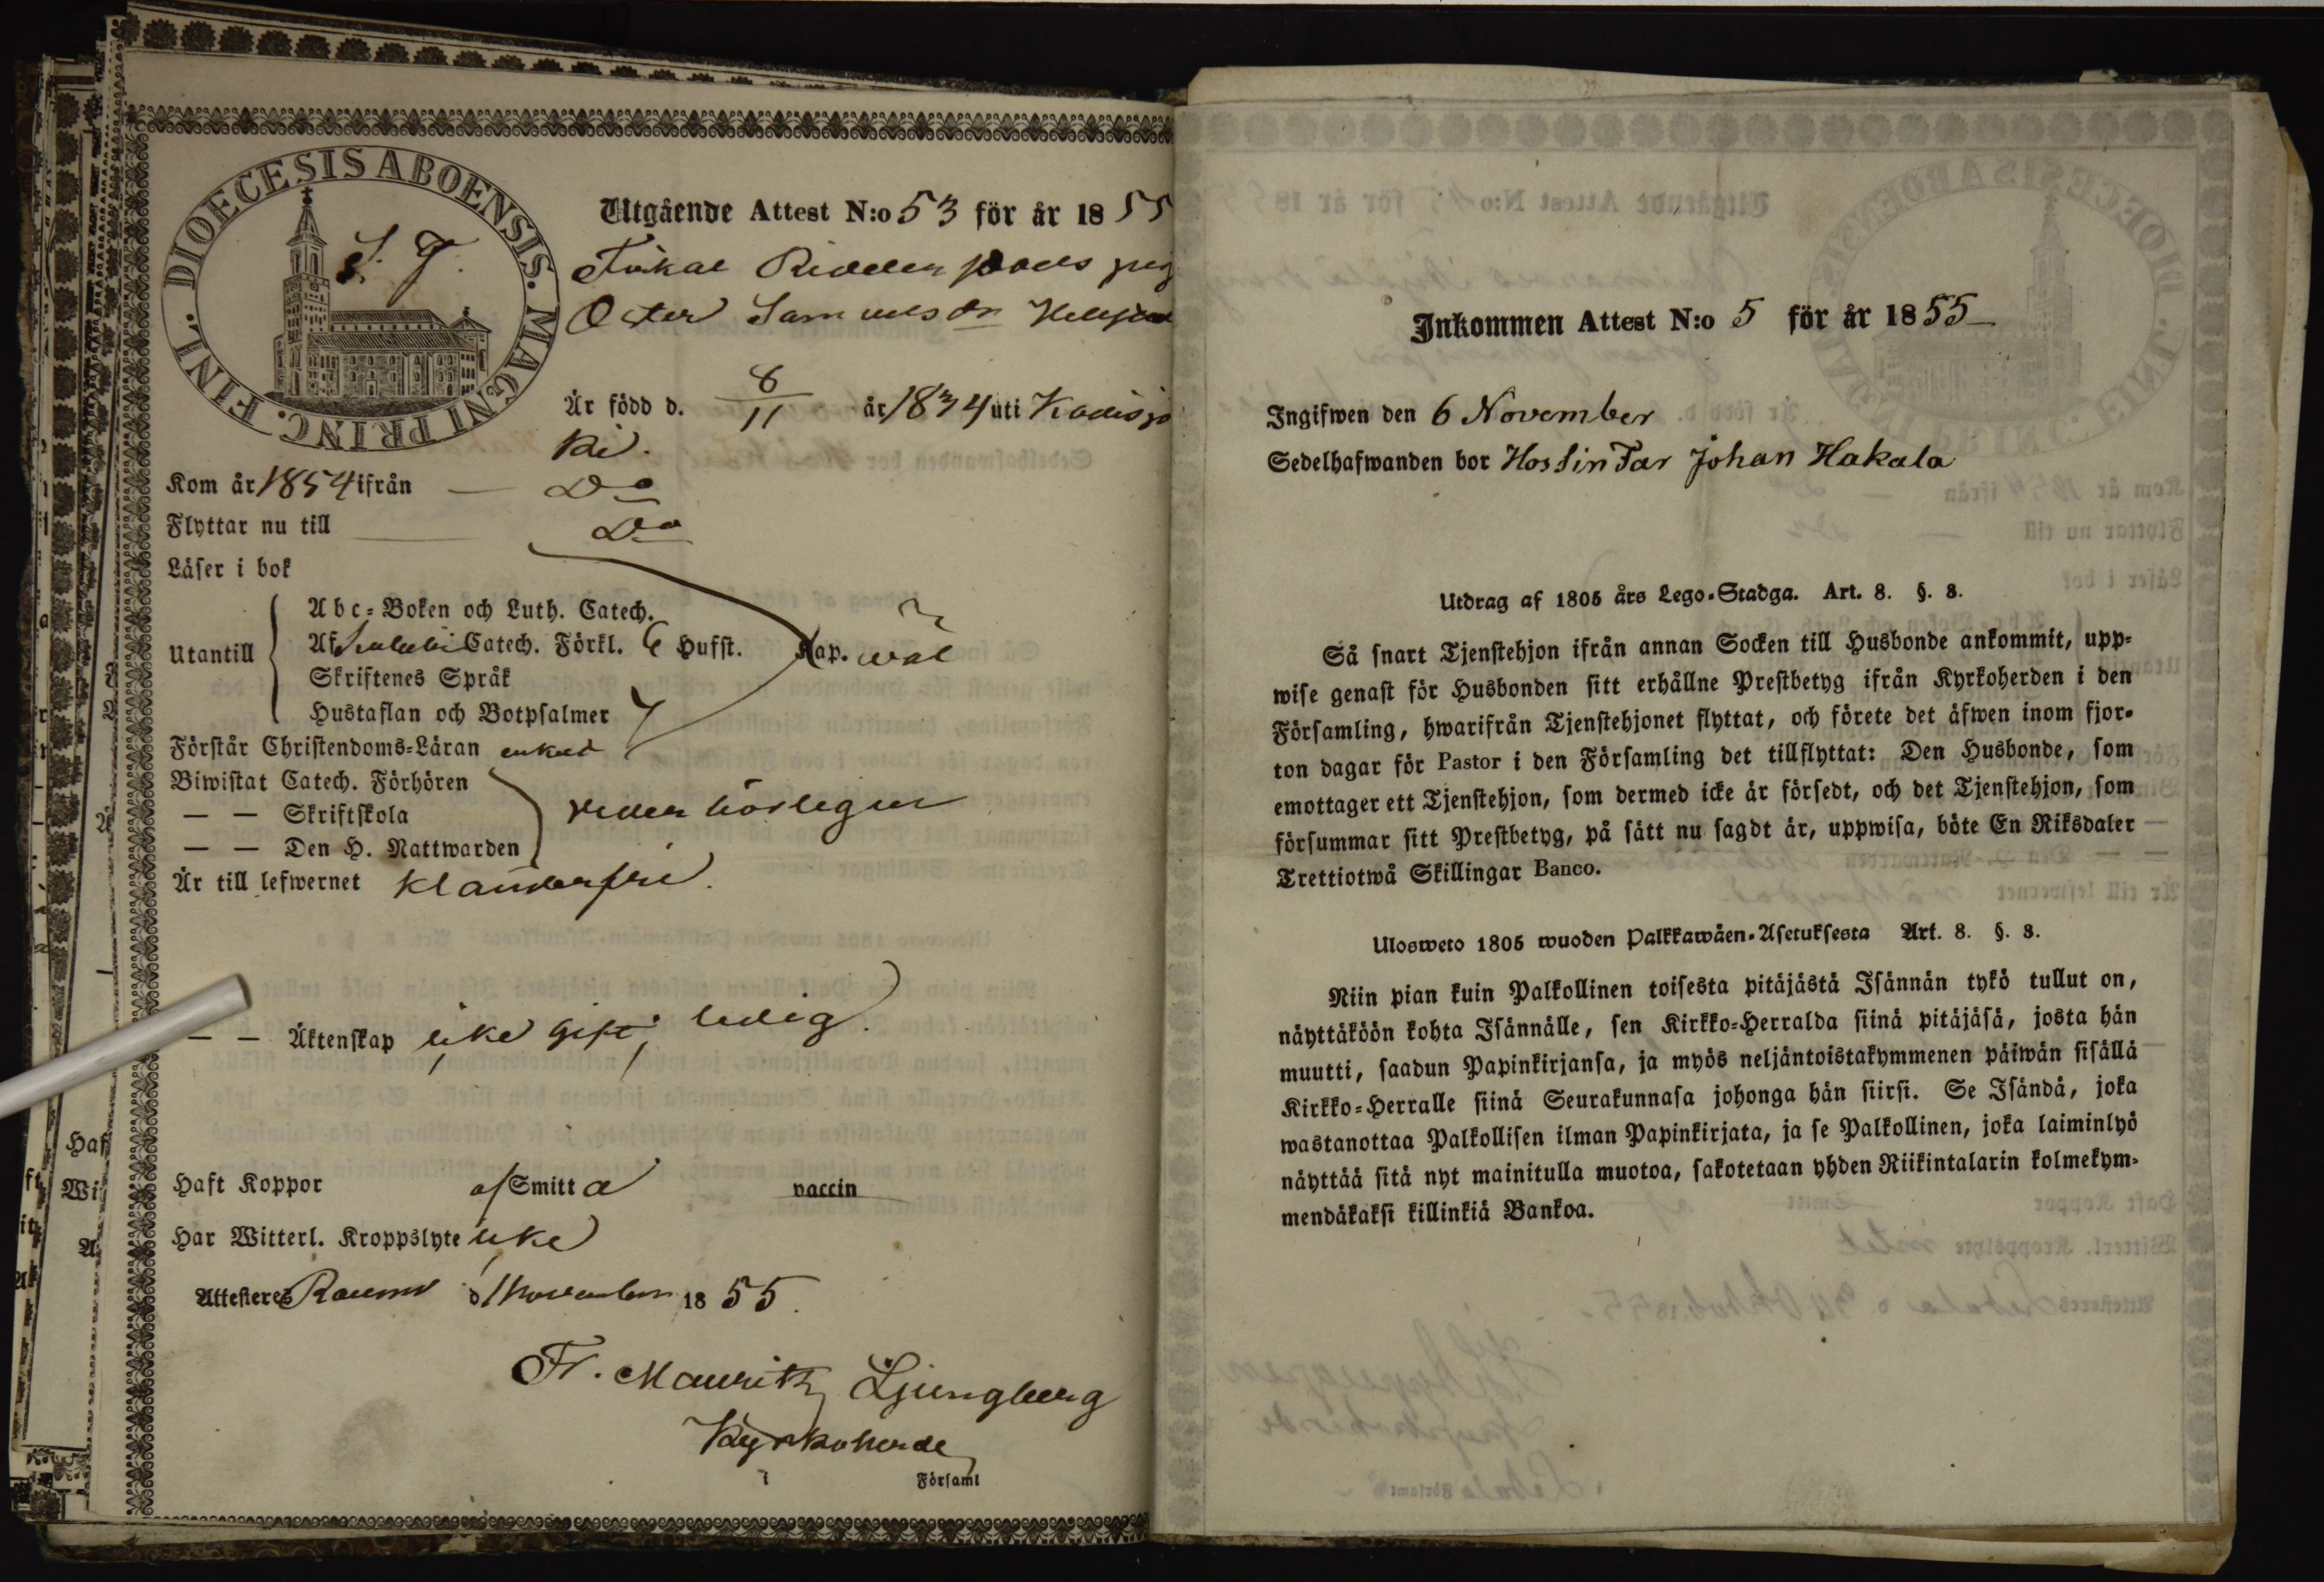 DIOECESIS ABOENSIS. MAGNI PRINC. FINL.
S. J.
Utgående Attest N:o 53 för år 1855
Samuelsdr
Är född d. 8/11 år 1834 uti Kodisjo
ki.
Kom år 1854 ifrån — Do
Flyttar nu till Do
Läser i bok
Utantill
Abc-Boken och Luth. Catech.
Af Catech. Förkl. 6 Hufst. Kap. wäl
Skriftenes Språk
Hustaflan och Botpsalmer
Förstår Christendoms-Läran enkelt
Biwistat Catech. Förhören
— — Skriftskola vederbörligen
— — Den H. Nattwarden
Är till lefwernet klanderfri.
— — Äktenskap icke gift, ledig.
Haft Koppor af Smitta vaccin
Har Witterl. Kroppslyte icke
Attesteres Raumo d 1 November 1855.
Fr. Mauritz Ljungberg
Kyrkoherde
i Församl
Haf
Wi
Inkommen Attest N:o 5 för år 1855
Ingifwen den 6 November
Sedelhafwanden bor Hos Sin Far Johan Hakala
Utdrag af 1805 års Lego-Stadga. Art. 8. §. 8.
Så snart Tjenstehjon ifrån annan Socken till Husbonde ankommit, upp-
wise genast för Husbonden sitt erhållne Prestbetyg ifrån Kyrkoherden i den
Församling, hwarifrån Tjenstehjonet flyttat, och förete det äfwen inom fjor-
ton dagar för Pastor i den Församling det tillflyttat: Den Husbonde, som
emottager ett Tjenstehjon, som dermed icke är försedt, och det Tjenstehjon, som
försummar sitt Prestbetyg, på sätt nu sagdt är, uppwisa, böte En Riksdaler
Trettiotwå Skillingar Banco.
Ulosweto 1805 wuoden Palkkawäen-Asetuksesta Art. 8. §. 8.
Niin pian kuin Palkollinen toisesta pitäjästä Isännän tykö tullut on,
näyttäköön kohta Isännälle, sen Kirkko-Herralda siinä pitäjäsä, josta hän
muutti, saadun Papinkirjansa, ja myös neljäntoistakymmenen päiwän sisällä
Kirkko-Herralle siinä Seurakunnasa johonga hän siirsi. Se Isändä, joka
wastanottaa Palkollisen ilman Papinkirjata, ja se Palkollinen, joka laiminlyö
näyttää sitä nyt mainitulla muotoa, sakotetaan yhden Riikintalarin kolmekym-
mendäkaksi killinkiä Bankoa.